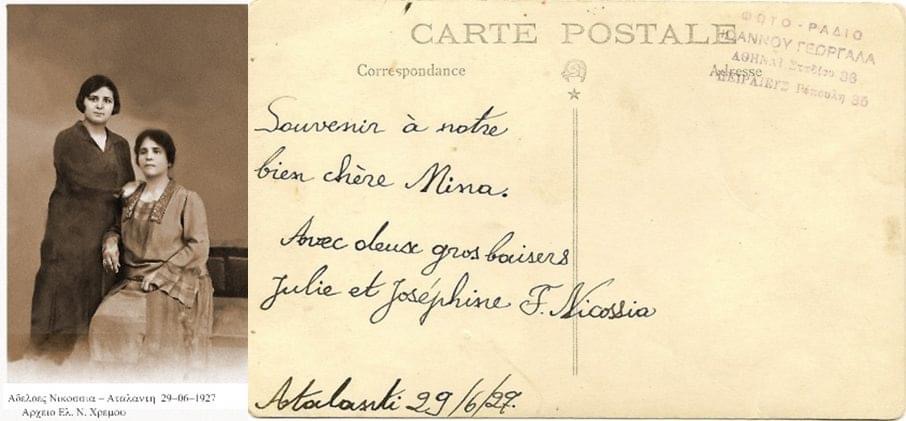 Αδελφες Νικοσσια – Αταλαντη 29–06–1927
Αρχειο Ελ. Ν. Χρεμου
CARTE POSTALE
Correspondance
Adresse
ΦΩΤΟ - ΡΑΔΙΟ
ΙΩΑΝΝΟΥ ΓΕΩΡΓΑΛΑ
ΑΘΗΝΑΙ Σταδίου 36
ΠΕΙΡΑΙΕΥΣ 35
Souvenir à notre
bien chère Mina.
Avec deux gros baisers
Julie et Joséphine F. Nicossia
Atalanti 29/6/27.